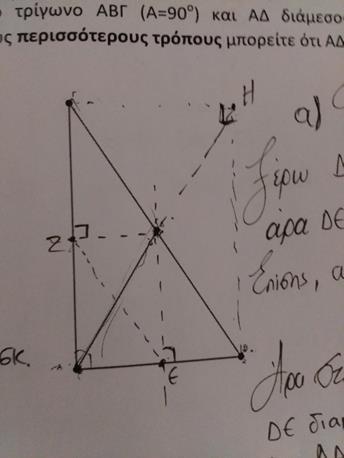 τρίγωνο ΑΒΓ (Α=90°) και ΑΔ διάμεσο
περισσότερους τρόπους μπορείτε ότι ΑΔ
Η
α)
Γ
ξέρω Δ
Ζ
άρα ΔΕ
Επίσης, α
σκ.
Α
Ε
Β
Άρα στ
ΔΕ δια
ΑΔ